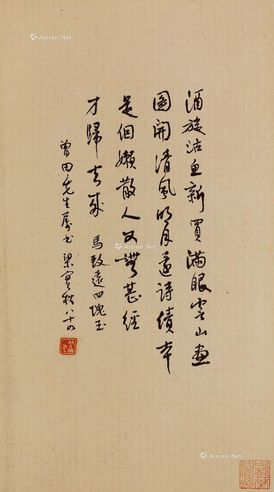 酒旋沽魚新買滿眼雲山畫
圖開清風明月還詩債本
是個嬾散人又無甚經
才歸去來 馬致遠四塊玉
曾田先生屬書 梁實秋
Artron.Net
Artron.Net
Artron.Net
Artron.Net